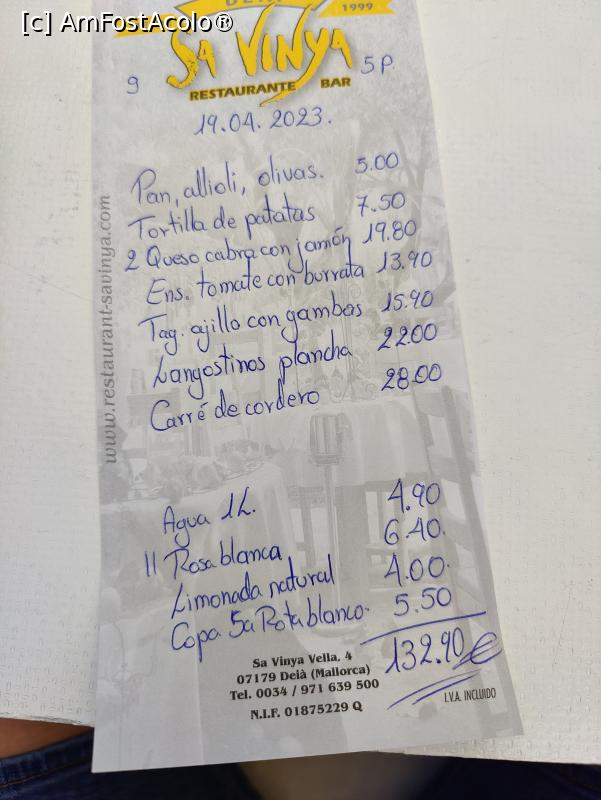 [c] AmFostAcolo®
DEIÀ
1999
SA VINYA
RESTAURANTE BAR
9
5 P.
19.04.2023.
Pan, allioli, olivas. 5.00
Tortilla de patatas 7.50
2 Queso cabra con jamón 19.80
Ens. tomate con burrata 13.90
Tag. ajillo con gambas 15.90
Langostinos plancha 22.00
Carré de cordero 28.00
Agua 1L. 4.90
II Rosa blanca 6.40.
Limonada natural 4.00.
Copa Sa Rota blanco. 5.50
132.90 €
Sa Vinya Vella, 4
07179 Deià (Mallorca)
Tel. 0034 / 971 639 500
N.I.F. 01875229 Q
I.V.A. INCLUIDO
www.restaurant-savinya.com